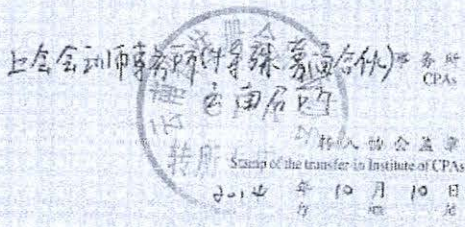 上会会计师事务所(特殊普通合伙)事务所
CPAs
云南分所
转所
转入协会盖章
Stamp of the transfer-in Institute of CPAs
2014 年 10 月 10 日